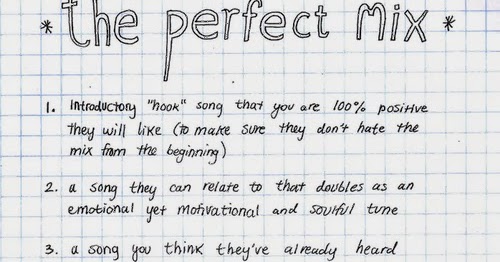 * the perfect mix *
1. Introductory "hook" song that you are 100% positive
they will like (to make sure they don't hate the
mix from the beginning)
2. a song they can relate to that doubles as an
emotional yet motivational and soulful tune
3. a song you think they've already heard